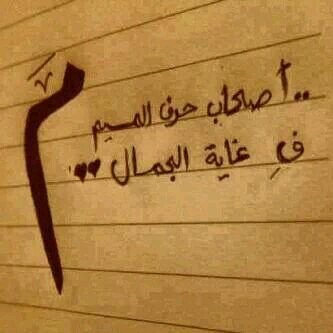 مَ
..أصحاب حرف الميم
فِ غاية الجمال ♥♥..